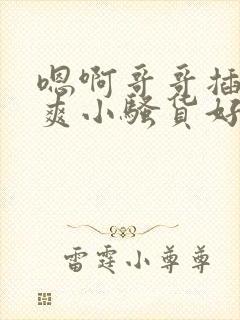 嗯啊哥哥插
爽小骚货好
雷霆小尊尊